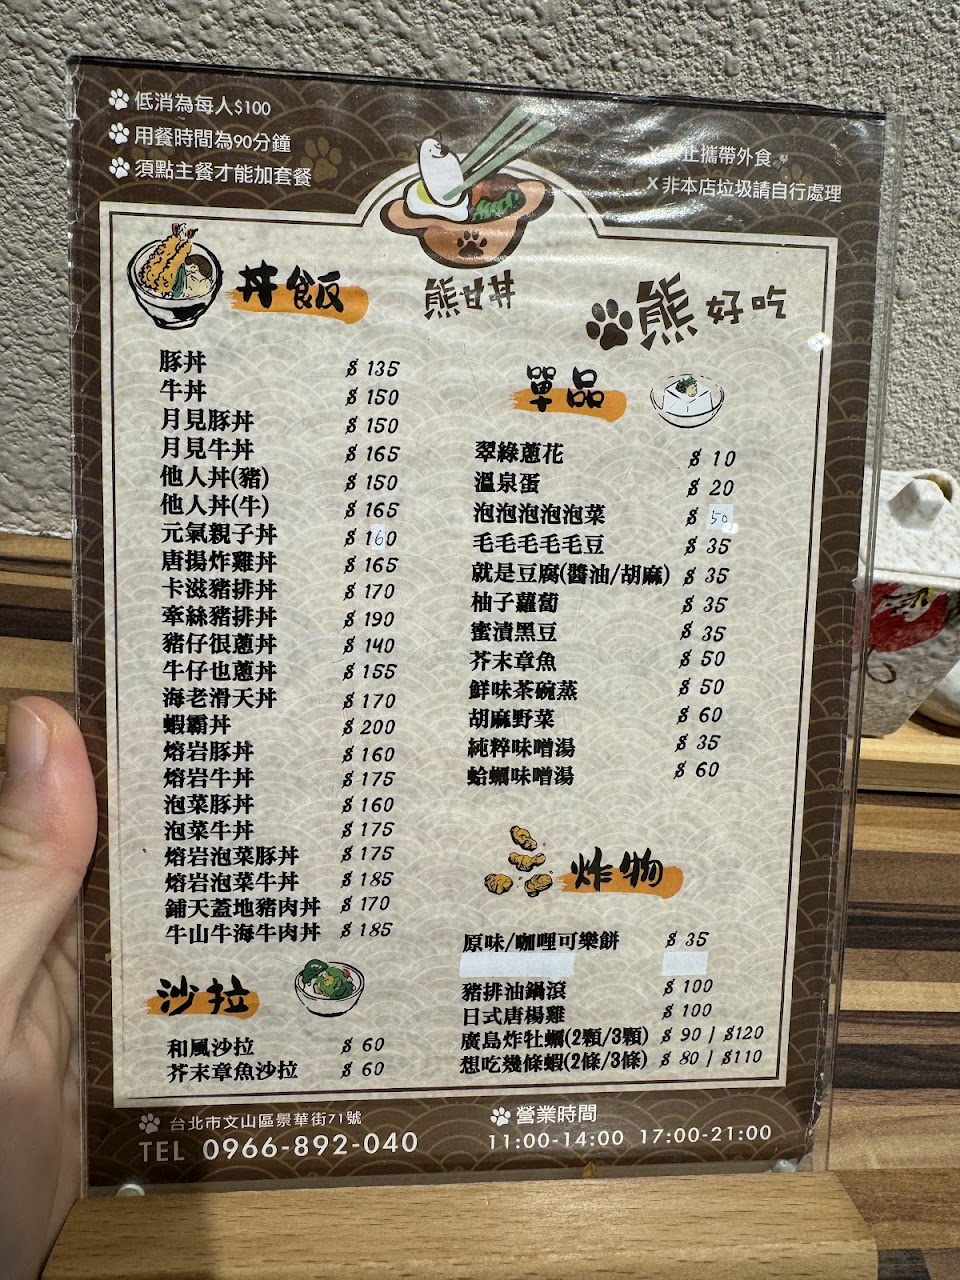 低消為每人$100
用餐時間為90分鐘
須點主餐才能加套餐
止攜帶外食
X非本店垃圾請自行處理
丼飯
熊丼丼
熊好吃
豚丼 $135
牛丼 $150
月見豚丼 $150
月見牛丼 $165
他人丼(豬) $150
他人丼(牛) $165
元氣親子丼 $160
唐揚炸雞丼 $165
卡滋豬排丼 $170
牽絲豬排丼 $190
豬仔很蔥丼 $140
牛仔也蔥丼 $155
海老滑天丼 $170
蝦霸丼 $200
熔岩豚丼 $160
熔岩牛丼 $175
泡菜豚丼 $160
泡菜牛丼 $175
熔岩泡菜豚丼 $175
熔岩泡菜牛丼 $185
鋪天蓋地豬肉丼 $170
牛山牛海牛肉丼 $185
沙拉
和風沙拉 $60
芥末章魚沙拉 $60
單品
翠綠蔥花 $10
溫泉蛋 $20
泡泡泡泡泡菜 $50
毛毛毛毛毛豆 $35
就是豆腐(醬油/胡麻) $35
柚子蘿蔔 $35
蜜漬黑豆 $35
芥末章魚 $50
鮮味茶碗蒸 $50
胡麻野菜 $60
純粹味噌湯 $35
蛤蠣味噌湯 $60
炸物
原味/咖哩可樂餅 $35
豬排油鍋滾 $100
日式唐楊雞 $100
廣島炸牡蠣(2顆/3顆) $90 / $120
想吃幾條蝦(2條/3條) $80 / $110
台北市文山區景華街71號
TEL 0966-892-040
營業時間
11:00-14:00 17:00-21:00